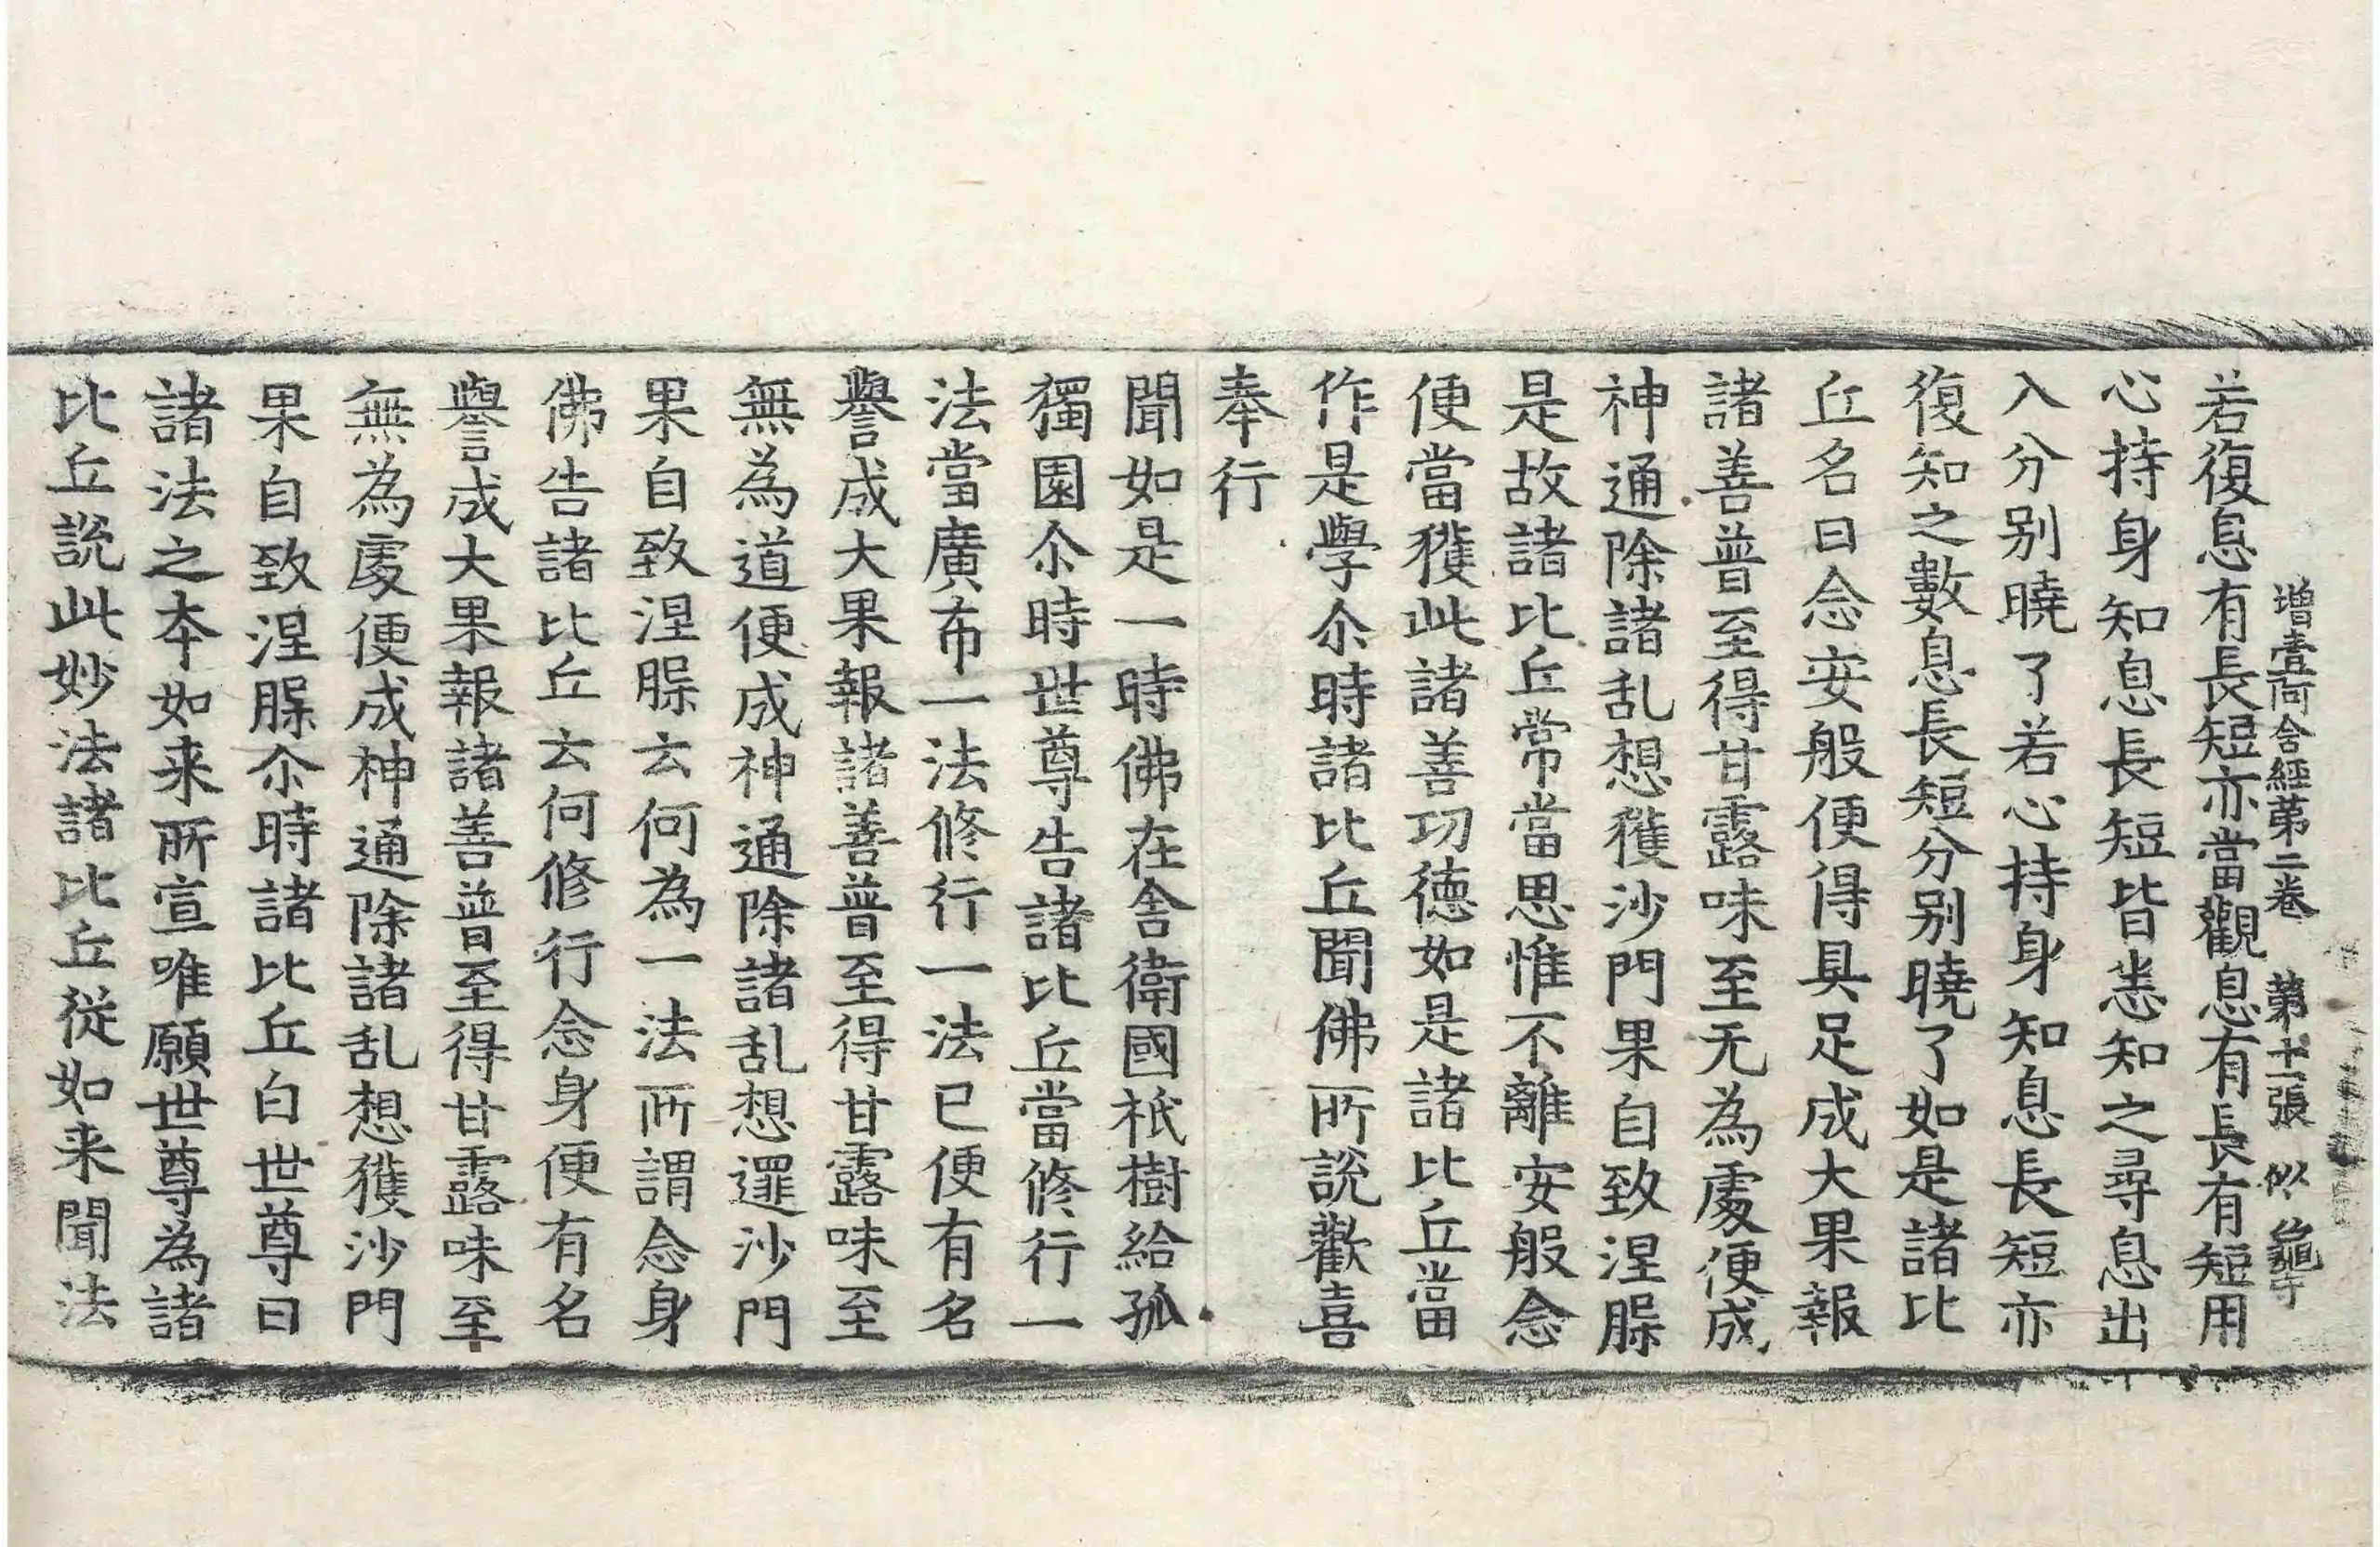 增壹阿含經第二卷　第十一張　似
若復息有長短亦當觀息有長有短用
心持身知息長短皆悉知之尋息出
入分別曉了若心持身知息長短亦
復知之數息長短分別曉了如是諸比
丘名曰念安般便得具足成大果報
諸善普至得甘露味至无為處便成
神通除諸乱想獲沙門果自致涅槃
是故諸比丘常當思惟不離安般念
便當獲此諸善功德如是諸比丘當
作是學尒時諸比丘聞佛所說歡喜
奉行
聞如是一時佛在舍衛國祇樹給孤
獨園尒時世尊告諸比丘當修行一
法當廣布一法修行一法已便有名
譽成大果報諸善普至得甘露味至
無為道便成神通除諸乱想逮沙門
果自致涅槃云何為一法所謂念身
佛告諸比丘云何修行念身便有名
譽成大果報諸善普至得甘露味至
無為處便成神通除諸乱想獲沙門
果自致涅槃尒時諸比丘白世尊曰
諸法之本如来所宣唯願世尊為諸
比丘說此妙法諸比丘從如来聞法